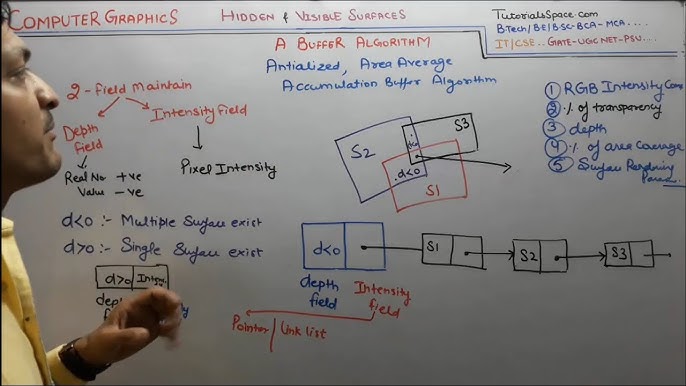 COMPUTER GRAPHICS
HIDDEN & VISIBLE SURFACES
TUTORIALSSPACE.COM
BTech/BE/BSC-BCA-MCA....
IT/CSE.. GATE-UGC NET-PSU....
A BUFFER ALGORITHM
Antialized, Area Average
Accumulation Buffer Algorithm
2-Field Maintain
Depth field
Intensity field
Real No +ve
Value -ve
Pixel Intensity
d<0 :- Multiple Surface exist
d>0 :- Single Surface exist
d>0 Intens
S2
S3
d<0
d<0
S1
1 RGB Intensity Com
2 % of transparency
3 depth
4 % of area coverage
5 Surface Rendering
Param
d<0
S1
S2
S3
depth field
Intensity field
Pointer / Link list